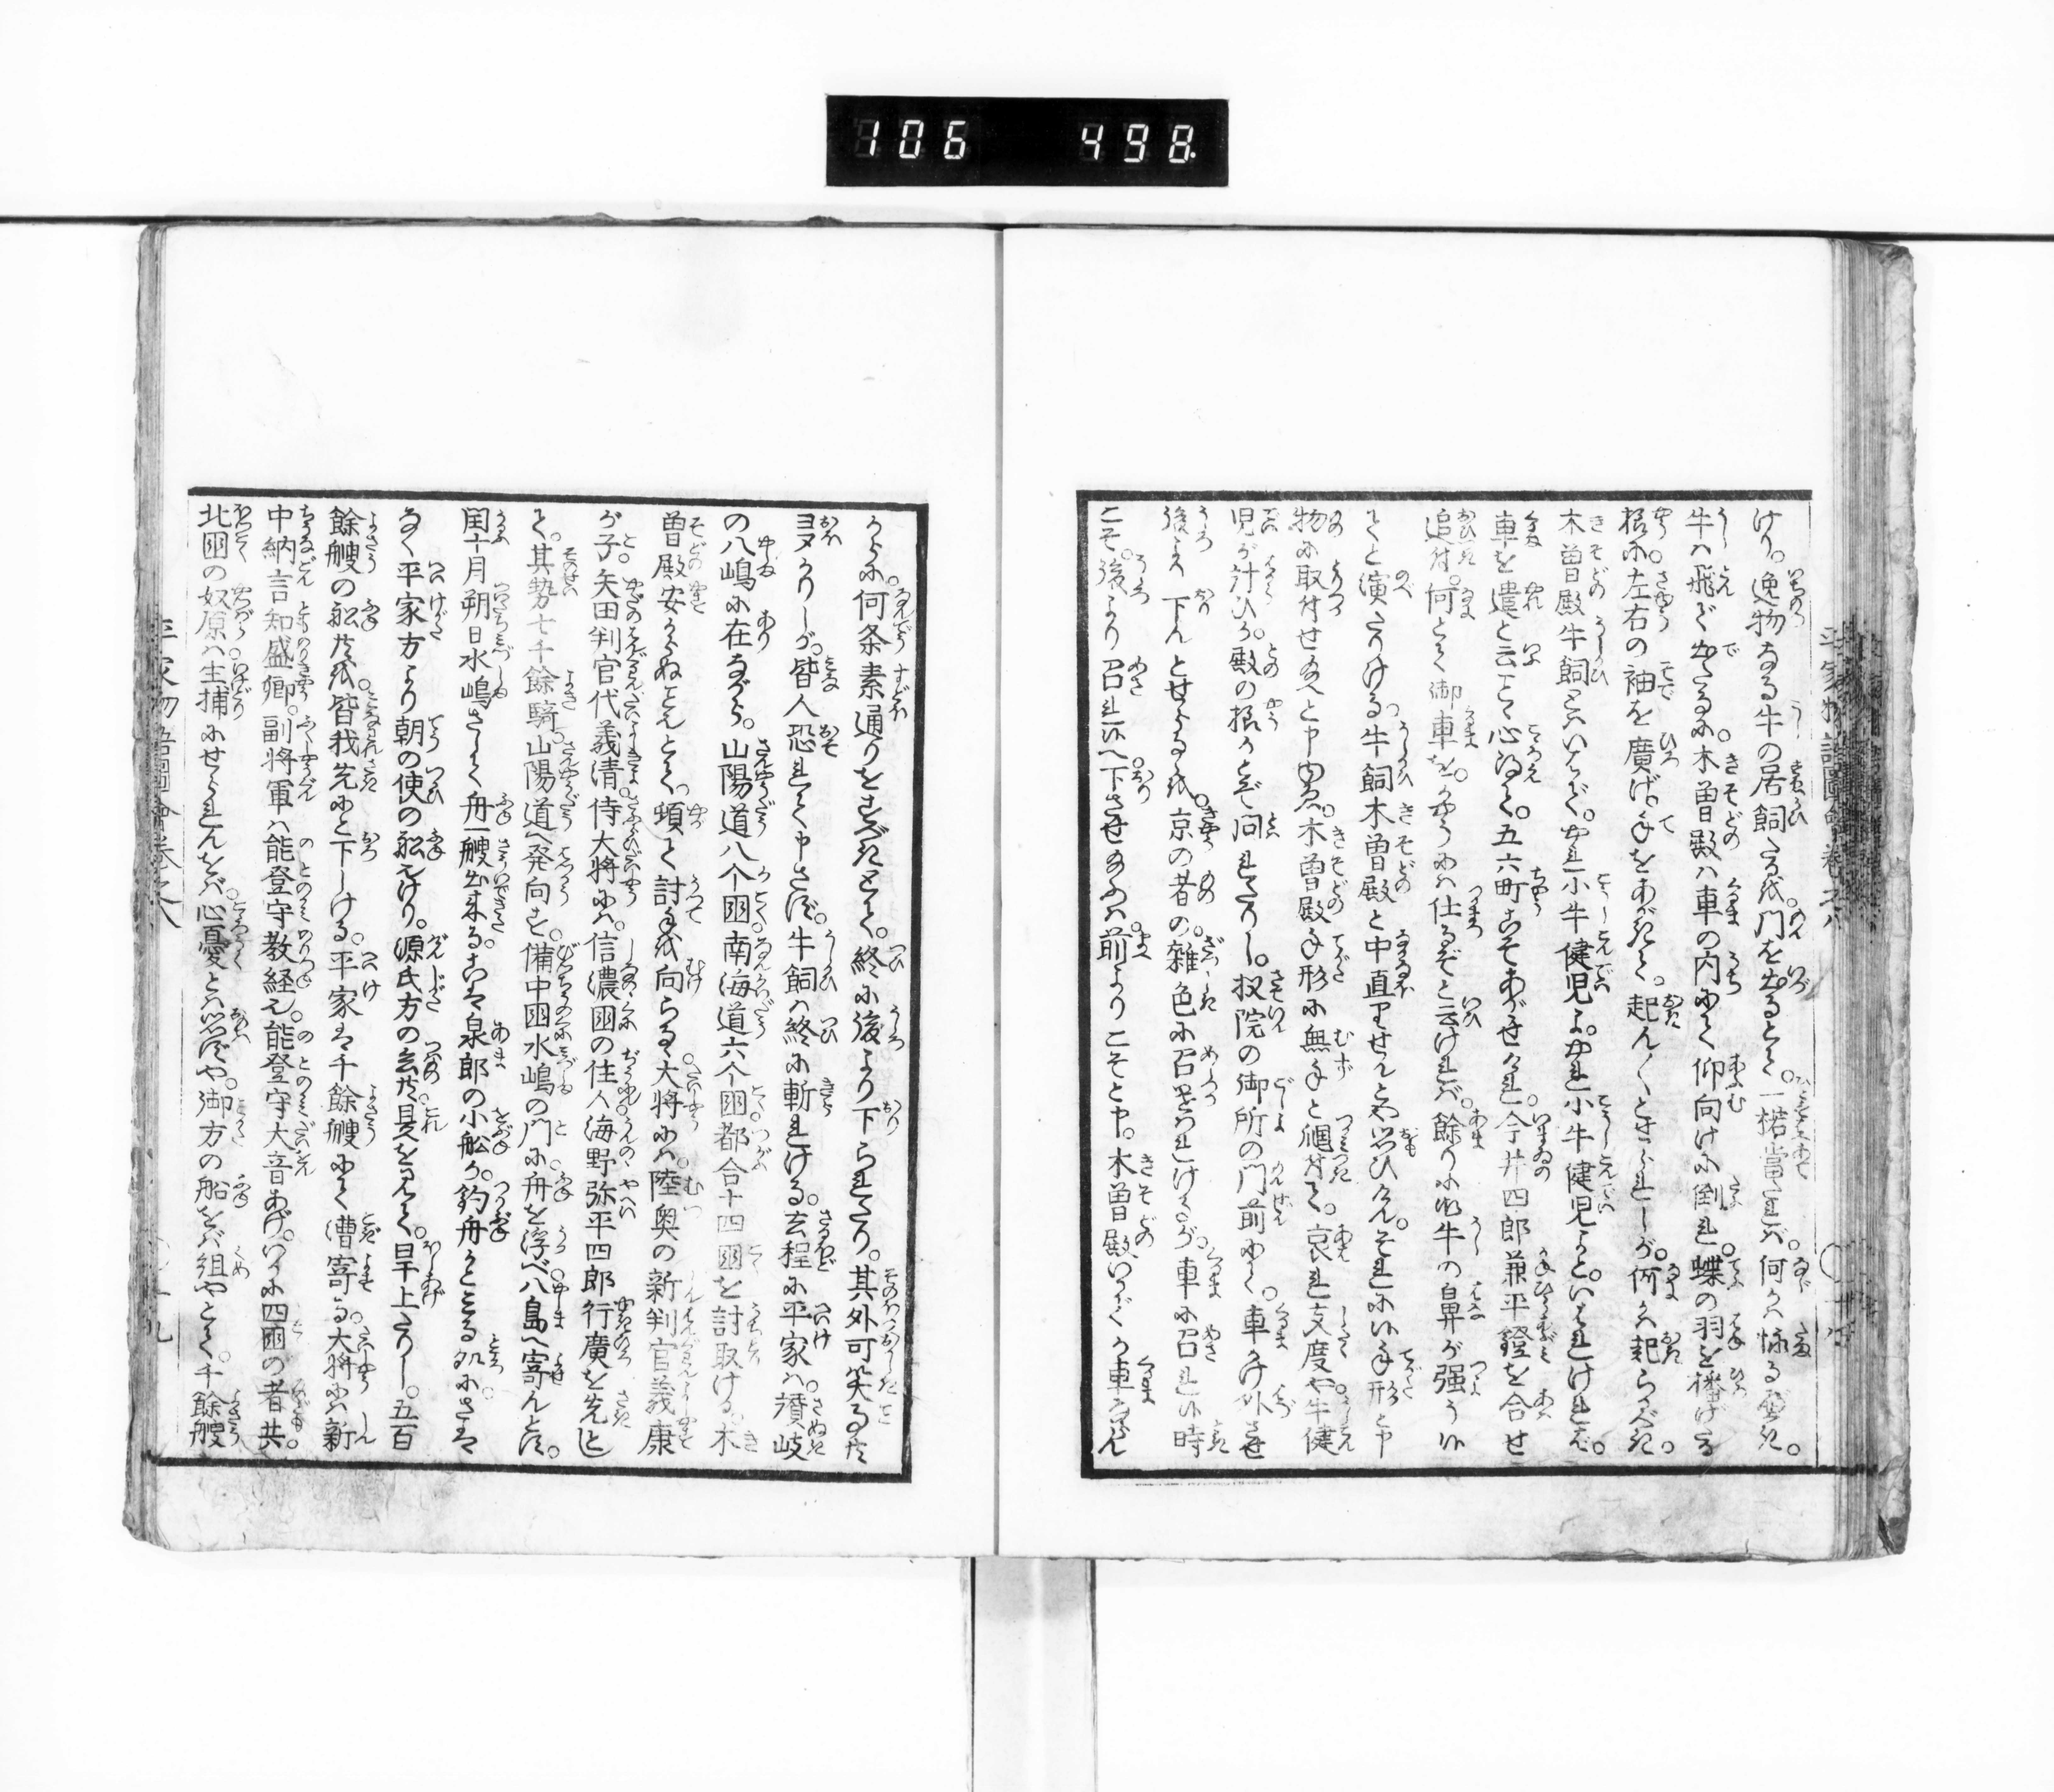 106 498.
平家物語圖會卷之八
けり。逸物なる牛の居飼たるが。門を出るとて。一楉當たれバ。何かハ怺るべき。
牛ハ飛で出たるに。木曽殿ハ車の内にて仰向けに倒れ。蝶の羽を擴げたる
様に。左右の袖を廣げ。手をあがきて。起ん〳〵とせられしが。何かハ起らるべき。
木曽殿牛飼とハいはで。やれ小牛健児よ。やれ小牛健児よと。いはれけれバ。
車を遣と云ぞと心得て。五六町こそあがせけれ。今井四郎兼平鐙を合せ
追付。何とて御車を。かやうにハ仕るぞと云けれバ。餘りに御牛の鼻が強う候
てと演たりける。牛飼木曽殿と中直りせんとや思ひけん。それに候手形と申
物に取付せ給へと申ければ。木曽殿手形に無手と掴付て。哀れ支度や。牛健
児が計ひか。殿の様かとぞ問れたりし。扠院の御所の門前にて。車かけ外させ
後より下んとせらるるを。京の者の。雑色に召具はれけるが。車に召れ候時
こそ。後より召れ候へ。下させ給ふハ。前よりこそと申。木曽殿いかでか車ならん
からに。何条素通りをすべきとて。終に後より下られたり。其外可笑事共
ヨヌかりしが。皆人恐れて申さず。牛飼ハ終に斬れける。去程に平家ハ。讃岐
の八嶋に在ながら。山陽道八个国。南海道六个国。都合十四国を討取ける。木
曽殿安からぬことなりとて。頓て討手を向らる。大将にハ。陸奥の新判官義康
が子。矢田判官代義清。侍大将にハ。信濃国の住人海野弥平四郎行廣を先とし
て。其勢七千餘騎。山陽道へ発向す。備中国水嶋の門に。舟を浮べ。八島へ寄んとす。
閏十月朔日水嶋さして。舟一艘出来る。こは泉郎の小舩か。釣舟かと見る処に。さは
なく平家方より朝の使の舩なりけり。源氏方の兵共是を見て。旱上たりし。五百
餘艘の舩共を。皆我先にと下しける。平家は千餘艘にて漕寄る。大将にハ新
中納言知盛卿。副将軍ハ能登守教経なり。能登守大音あげ。いかに四国の者共。
北国の奴原ハ。生捕にせられんをバ。心憂とハ思ハずや。御方の船をバ組やとて。千餘艘
平家物語圖會卷之八